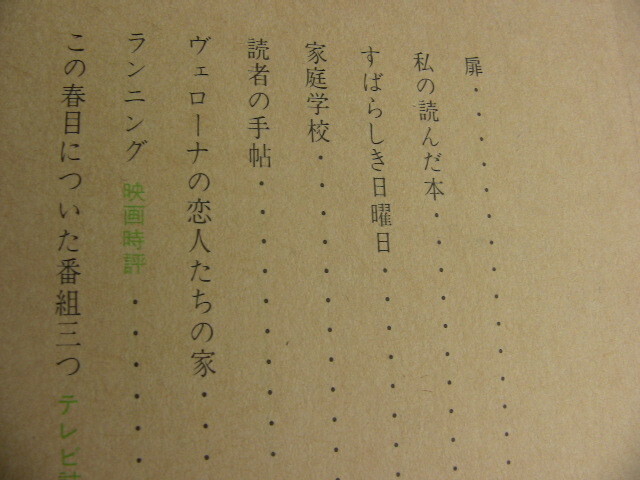 扉・・・・・・・・・・・・・
私の読んだ本・・・・・・・・・
すばらしき日曜日・・・・・・・・
家庭学校・・・・・・・・・・・・
読者の手帖・・・・・・・・・・
ヴェローナの恋人たちの家・・・
ランニング 映画時評・・・・・・
この春目についた番組三つ テレビ